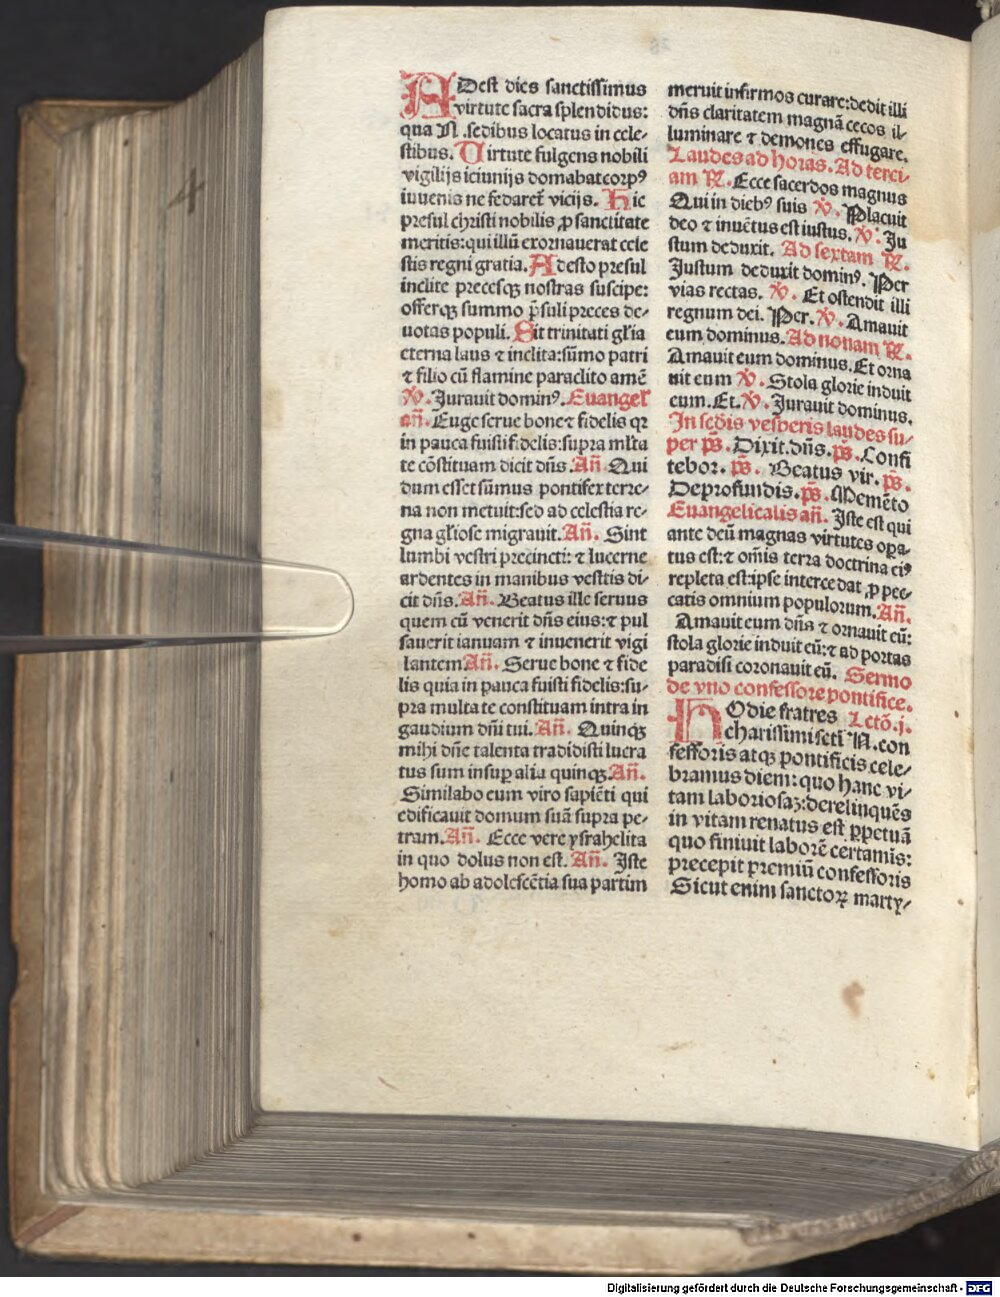 ADest dies sanctissimus
virtute sacra splendidus:
qua N. sedibus locatus in cele-
stibus. Virtute fulgens nobili
vigilijs ieiunijs domabat corpꝰ
iuuenis ne fedaret᷑ vicijs. Hic
presul christi nobilis ꝓ sanctitate
meritis: qui illū exornauerat cele
stis regni gratia. Adesto presul
inclite precesqꝫ nostras suscipe:
offerqꝫ summo p̄suli preces de-
uotas populi. Sit trinitati gl̄ia
eterna laus ⁊ inclita: sūmo patri
⁊ filio cū flamine paraclito amē
V̇. Jurauit dominꝰ. Euangel̄
an̄. Euge serue bone ⁊ fidelis qꝛ
in pauca fuisti fidelis: supra ml̄ta
te cōstituam dicit dn̄s. An̄. Qui
dum esset sūmus pontifex terre-
na non metuit: sed ad celestia re-
gna gl̄iose migrauit. An̄. Sint
lumbi vestri precincti: ⁊ lucerne
ardentes in manibus vestris di-
cit dn̄s. An̄. Beatus ille seruus
quem cū venerit dn̄s eius: ⁊ pul
sauerit ianuam ⁊ inuenerit vigi
lantem An̄. Serue bone ⁊ fide
lis quia in pauca fuisti fidelis: su-
pra multa te constituam intra in
gaudium dn̄i tui. An̄. Quinqꝫ
mihi dn̄e talenta tradidisti lucra
tus sum insuꝑ alia quinqꝫ. An̄.
Similabo eum viro sapiēti qui
edificauit domum suā supra pe-
tram. An̄. Ecce vere ysrahelita
in quo dolus non est. An̄. Iste
homo ab adolescētia sua partim
meruit infirmos curare: dedit illi
dn̄s claritatem magnā cecos il-
luminare ⁊ demones effugare.
Laudes ad horas. Ad terci-
am R̄. Ecce sacerdos magnus
Qui in diebꝰ suis V̇. Placuit
deo ⁊ inuētus est iustus. V̇. Ju
stum deduxit. Ad sextam R̄.
Justum deduxit dominꝰ. Per
vias rectas. V̇. Et ostendit illi
regnum dei. Per. V̇. Amauit
eum dominus. Ad nonam R̄.
Amauit eum dominus. Et orna
uit eum V̇. Stola glorie induit
eum. Et. V̇. Jurauit dominus.
In sc̄dis vesperis laudes su-
per ps̄. Dixit. dn̄s. ps̄. Confi
tebor. ps̄. Beatus vir. ps̄.
De profundis. ps̄. Memēto
Euangelicalis an̄. Iste est qui
ante deū magnas virtutes oꝑa-
tus est: ⁊ om̄is terra doctrina eiꝰ
repleta est: ipse intercedat ꝓ pec-
catis omnium populorum. An̄.
Amauit eum dn̄s ⁊ ornauit eū:
stola glorie induit eū: ⁊ ad portas
paradisi coronauit eū. Sermo
de vno confessore pontifice.
HOdie fratres Lctō. j.
charissimi sc̄ti N. con
fessoris atqꝫ pontificis cele-
bramus diem: quo hanc vi-
tam laboriosaꝫ: derelinquēs
in vitam renatus est ꝑpetuā
quo finiuit laborē certamis:
precepit premiū confessoris
Sicut enim sanctoꝝ marty-
Digitalisierung gefördert durch die Deutsche Forschungsgemeinschaft - DFG